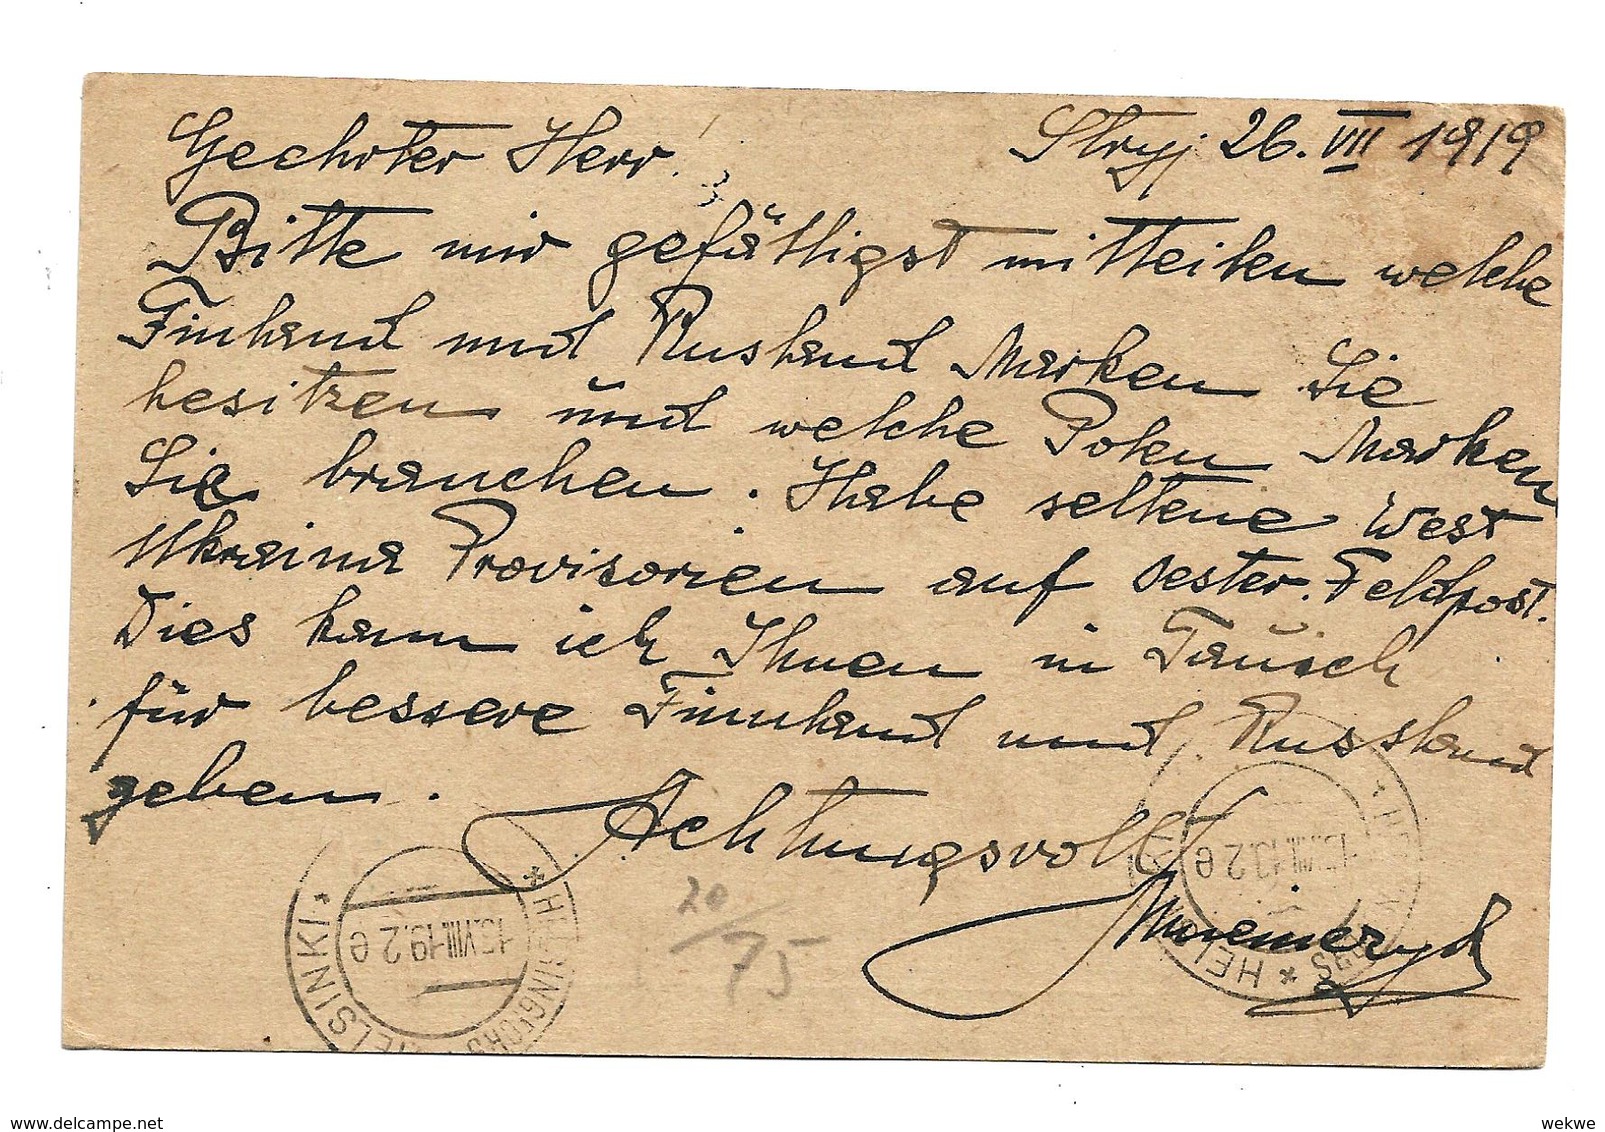 Stryj 26. VII 1919
Geehrter Herr!
Bitte mir gefälligst mitteilen welche
Finland und Rusland Marken Sie
besitzen und welche Polen Marken
Sie brauchen. Habe seltene West
Ukraina Provisorien auf Oester. Feldpost.
Dies kann ich Ihnen in Tausch
für bessere Finnland und Russland
geben.
Achtungsvoll
20/75
HELSINKI * HELSINGFORS
15.VIII.19.2 e
HELSINKI * HELSINGFORS
15.VIII.19.2 e
delcampe.net
wekwe